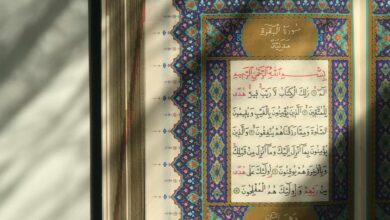 سورة البقرة
مدنية
بسم الله الرحمن الرحيم
الم ذلك الكتاب لا ريب فيه هدى
للمتقين الذين يؤمنون بالغيب ويقيمون
الصلوة ومما رزقناهم ينفقون والذين
يؤمنون بما انزل اليك وما انزل من قبلك
وبالآخرة هم يوقنون اولئك على هدى
من ربهم واولئك هم المفلحون